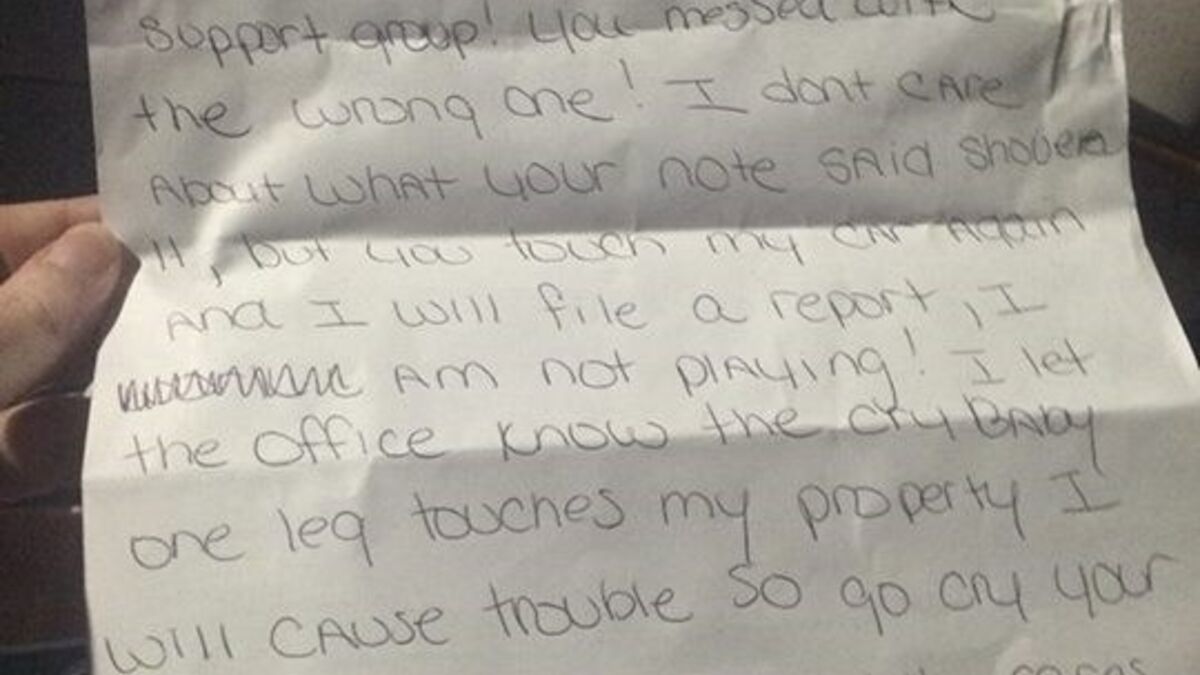 support group! You messed with
the wrong one! I dont care
About what your note said shove
it, but you touch my car again
and I will file a report, I
am not playing! I let
the office know the cry baby
one leg touches my property I
will cause trouble so go cry your